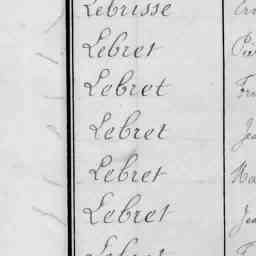 Lebrisse
Lebret
Lebret
Lebret
Lebret
Lebret
Lebret